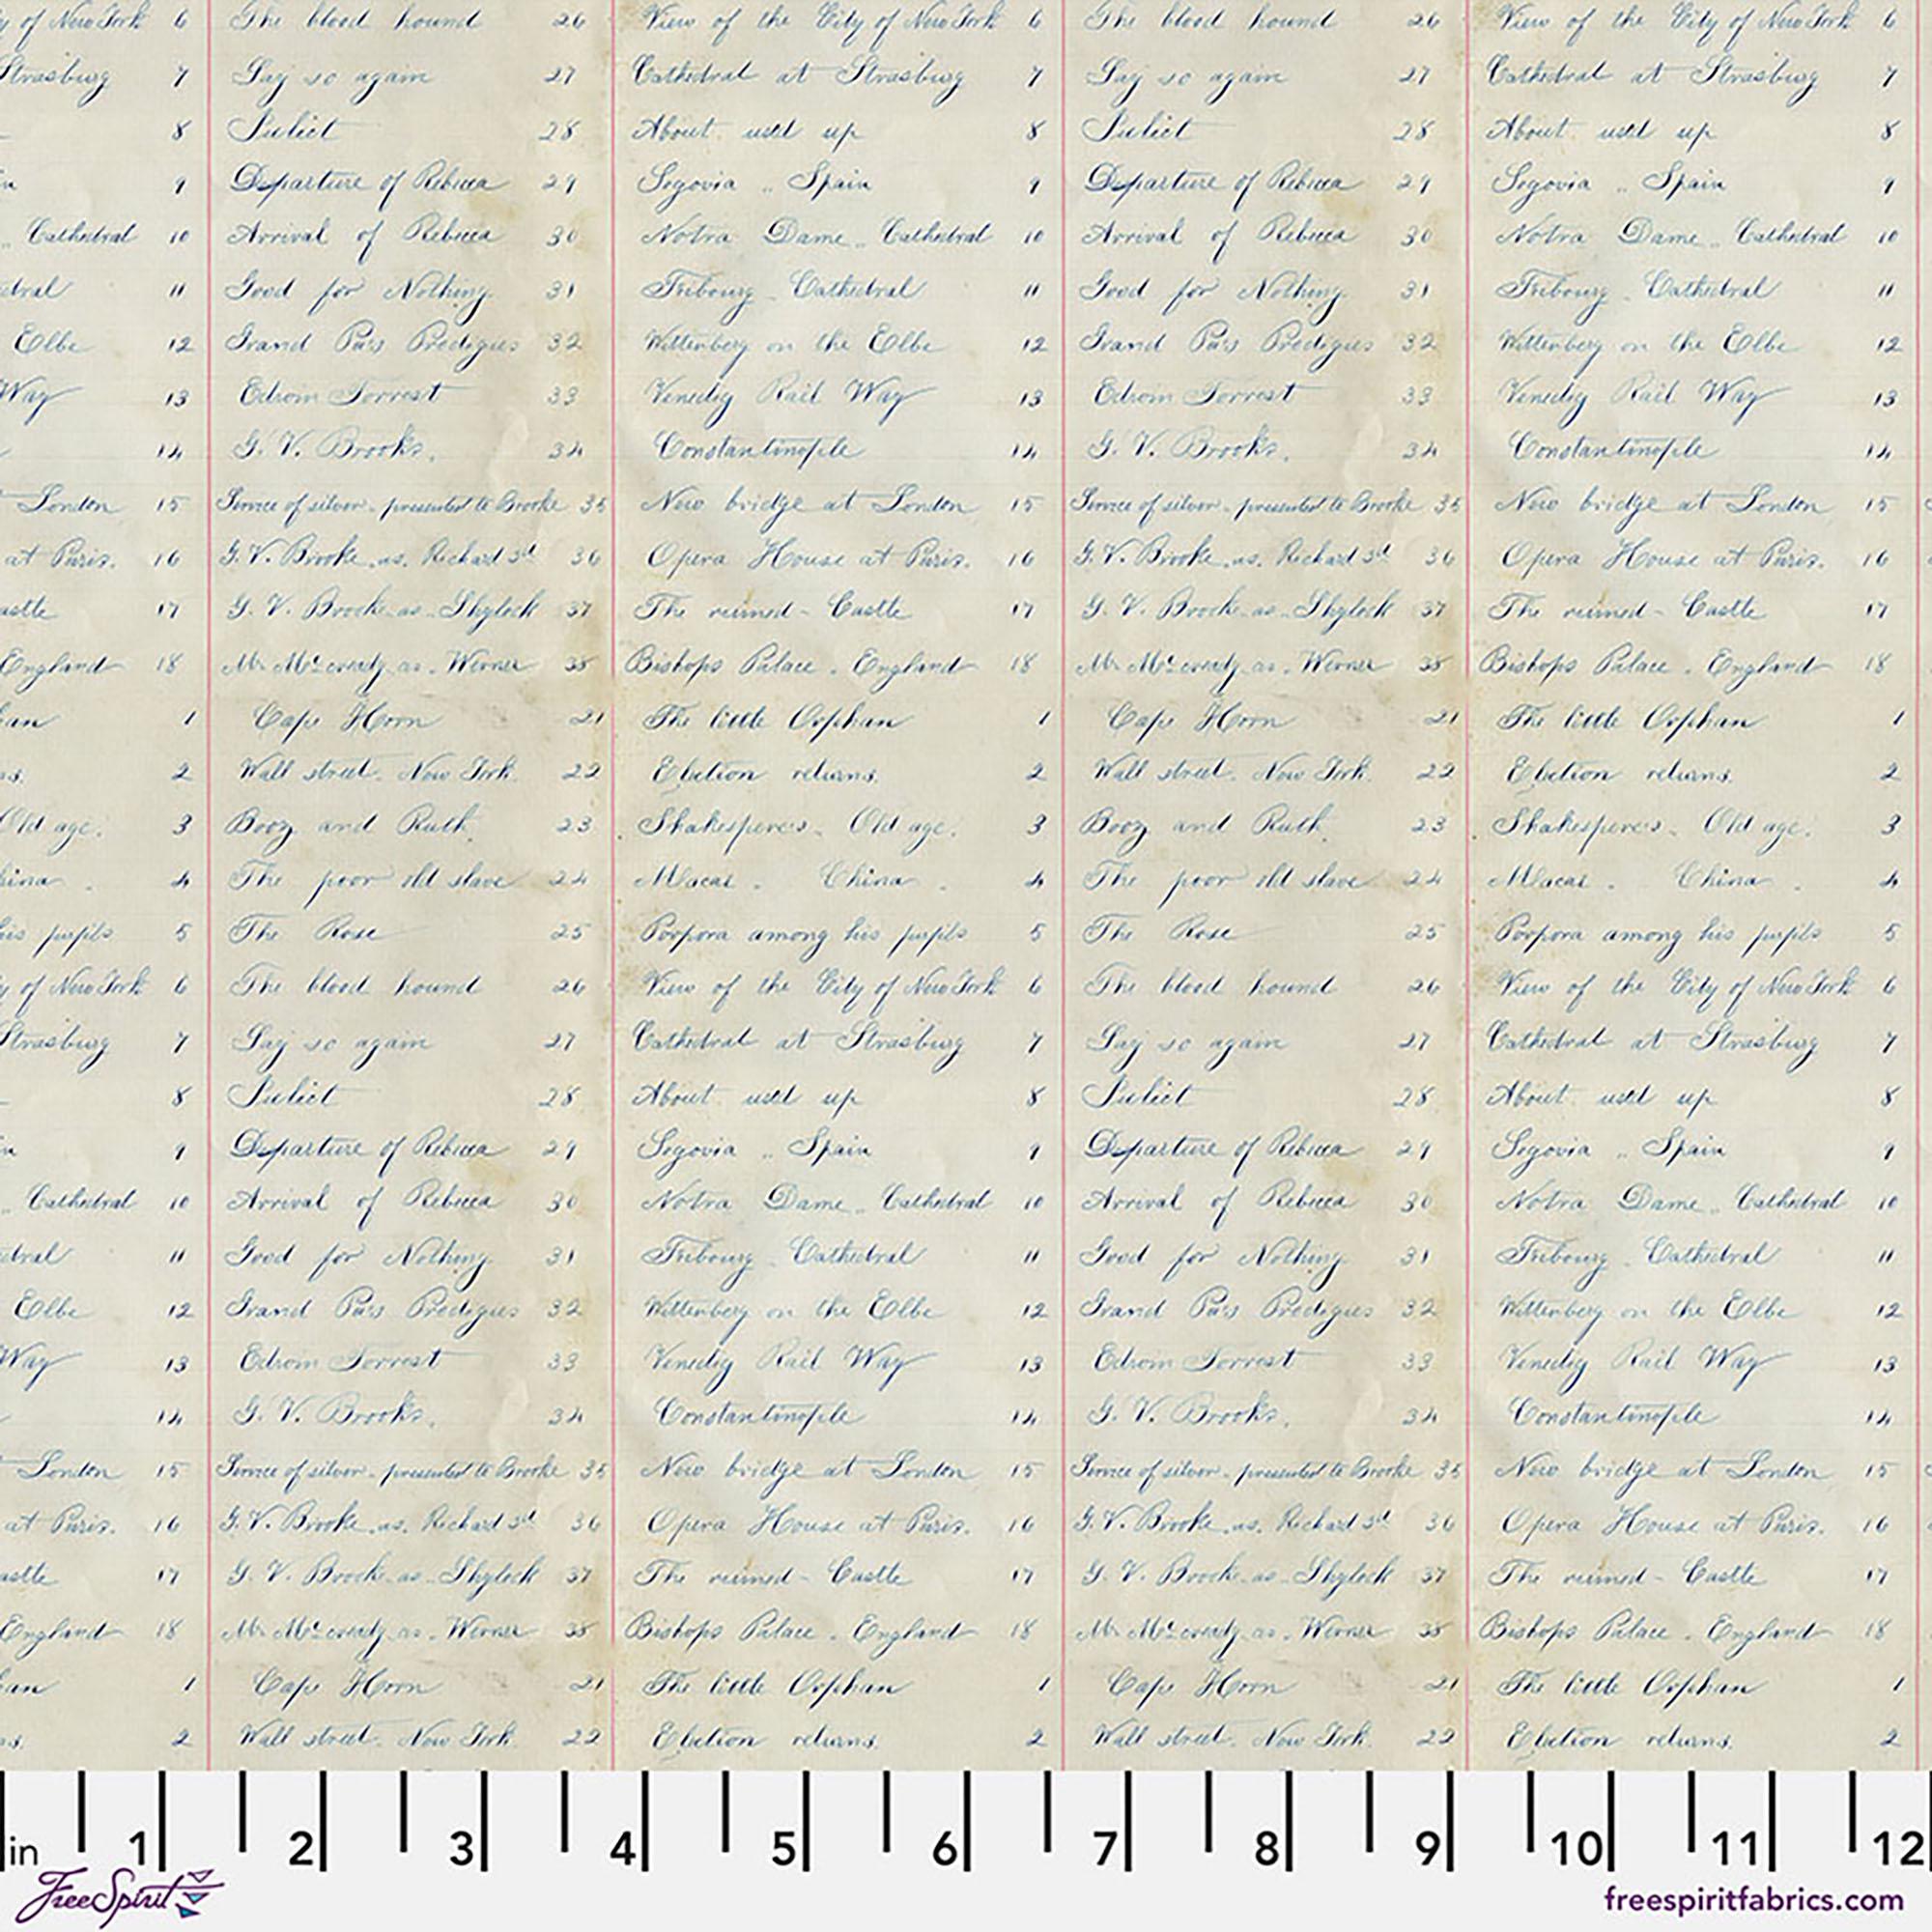 y of New York 6 The blood hound 26 View of the City of New York 6 The blood hound 26 View of the City of New York 6
Strasburg 7 Say so again 27 Cathedral at Strasburg 7 Say so again 27 Cathedral at Strasburg 7
8 Juliet 28 About used up 8 Juliet 28 About used up 8
9 Departure of Rebecca 29 Segovia .. Spain 9 Departure of Rebecca 29 Segovia .. Spain 9
.. Cathedral 10 Arrival of Rebecca 30 Notra Dame .. Cathedral 10 Arrival of Rebecca 30 Notra Dame .. Cathedral 10
edral 11 Good for Nothing 31 Fribourg - Cathedral 11 Good for Nothing 31 Fribourg - Cathedral 11
Elbe 12 32 Wittenberg on the Elbe 12 32 Wittenberg on the Elbe 12
Way 13 Edwin Forrest 33 Venedig Rail Way 13 Edwin Forrest 33 Venedig Rail Way 13
14 G. V. Brooke. 34 Constantinople 14 G. V. Brooke. 34 Constantinople 14
London 15 Service of silver - presented to Brooke 35 New bridge at London 15 Service of silver - presented to Brooke 35 New bridge at London 15
at Paris. 16 G. V. Brooke . as . Richard 3d 36 Opera House at Paris. 16 G. V. Brooke . as . Richard 3d 36 Opera House at Paris. 16
astle 17 G. V. Brooke - as - Shylock 37 The ruined - Castle 17 G. V. Brooke - as - Shylock 37 The ruined - Castle 17
England 18 Mr McCready . as . Werner 38 Bishops Palace . England 18 Mr McCready . as . Werner 38 Bishops Palace . England 18
an 1 Cape Horn 21 The little Orphan 1 Cape Horn 21 The little Orphan 1
s. 2 Wall street. New York. 22 Election returns. 2 Wall street. New York. 22 Election returns. 2
Old age. 3 Booz and Ruth. 23 Shakesperes - Old age. 3 Booz and Ruth. 23 Shakesperes - Old age. 3
hina . 4 The poor old slave 24 Macao . China . 4 The poor old slave 24 Macao . China . 4
his pupils 5 The Rose 25 Porpora among his pupils 5 The Rose 25 Porpora among his pupils 5
y of New York 6 The blood hound 26 View of the City of New York 6 The blood hound 26 View of the City of New York 6
Strasburg 7 Say so again 27 Cathedral at Strasburg 7 Say so again 27 Cathedral at Strasburg 7
8 Juliet 28 About used up 8 Juliet 28 About used up 8
9 Departure of Rebecca 29 Segovia .. Spain 9 Departure of Rebecca 29 Segovia .. Spain 9
.. Cathedral 10 Arrival of Rebecca 30 Notra Dame .. Cathedral 10 Arrival of Rebecca 30 Notra Dame .. Cathedral 10
edral 11 Good for Nothing 31 Fribourg - Cathedral 11 Good for Nothing 31 Fribourg - Cathedral 11
Elbe 12 32 Wittenberg on the Elbe 12 32 Wittenberg on the Elbe 12
Way 13 Edwin Forrest 33 Venedig Rail Way 13 Edwin Forrest 33 Venedig Rail Way 13
14 G. V. Brooke. 34 Constantinople 14 G. V. Brooke. 34 Constantinople 14
London 15 Service of silver - presented to Brooke 35 New bridge at London 15 Service of silver - presented to Brooke 35 New bridge at London 15
at Paris. 16 G. V. Brooke . as . Richard 3d 36 Opera House at Paris. 16 G. V. Brooke . as . Richard 3d 36 Opera House at Paris. 16
astle 17 G. V. Brooke - as - Shylock 37 The ruined - Castle 17 G. V. Brooke - as - Shylock 37 The ruined - Castle 17
England 18 Mr McCready . as . Werner 38 Bishops Palace . England 18 Mr McCready . as . Werner 38 Bishops Palace . England 18
an 1 Cape Horn 21 The little Orphan 1 Cape Horn 21 The little Orphan 1
s. 2 Wall street. New York. 22 Election returns. 2 Wall street. New York. 22 Election returns. 2
in 1 2 3 4 5 6 7 8 9 10 11 12
FreeSpirit
freespiritfabrics.com